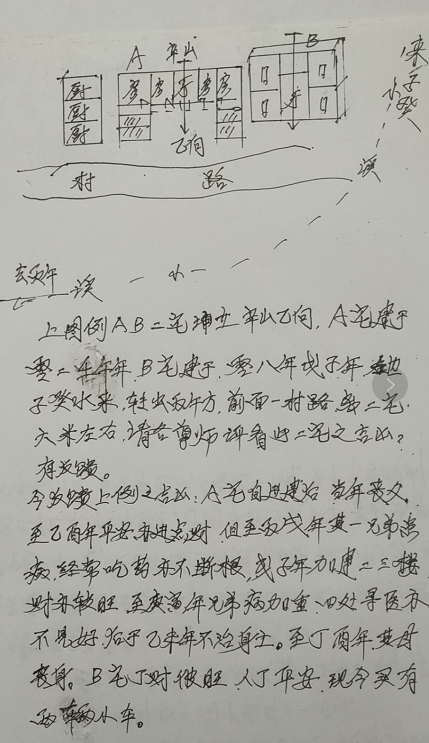 A 辛山
B
来子癸
水
厨
厨
厨
房 房 厅 房 房
乙向
厅
村 路
溪
小
去丙午
溪
上图例AB二宅坤立辛山乙向，A宅建于
零二年午年，B宅建于零八年戊子年，
子癸水来，转出丙午方，前面一村路，距二宅
六米左右，请各尊师评看此二宅之吉凶？
有反馈。
今反馈上例之吉凶：A宅自进建后当年丧父，
至乙酉年平安亦进点财，但至丙戌年其一兄弟患
病，经常吃药亦不断根，戊子年加建二三楼
财亦较旺，至庚寅年兄弟病加重，四处寻医亦
不见好，后于乙未年不治身亡。至丁酉年，其母
丧身。B宅丁财很旺，人丁平安，现今买有
两辆小车。